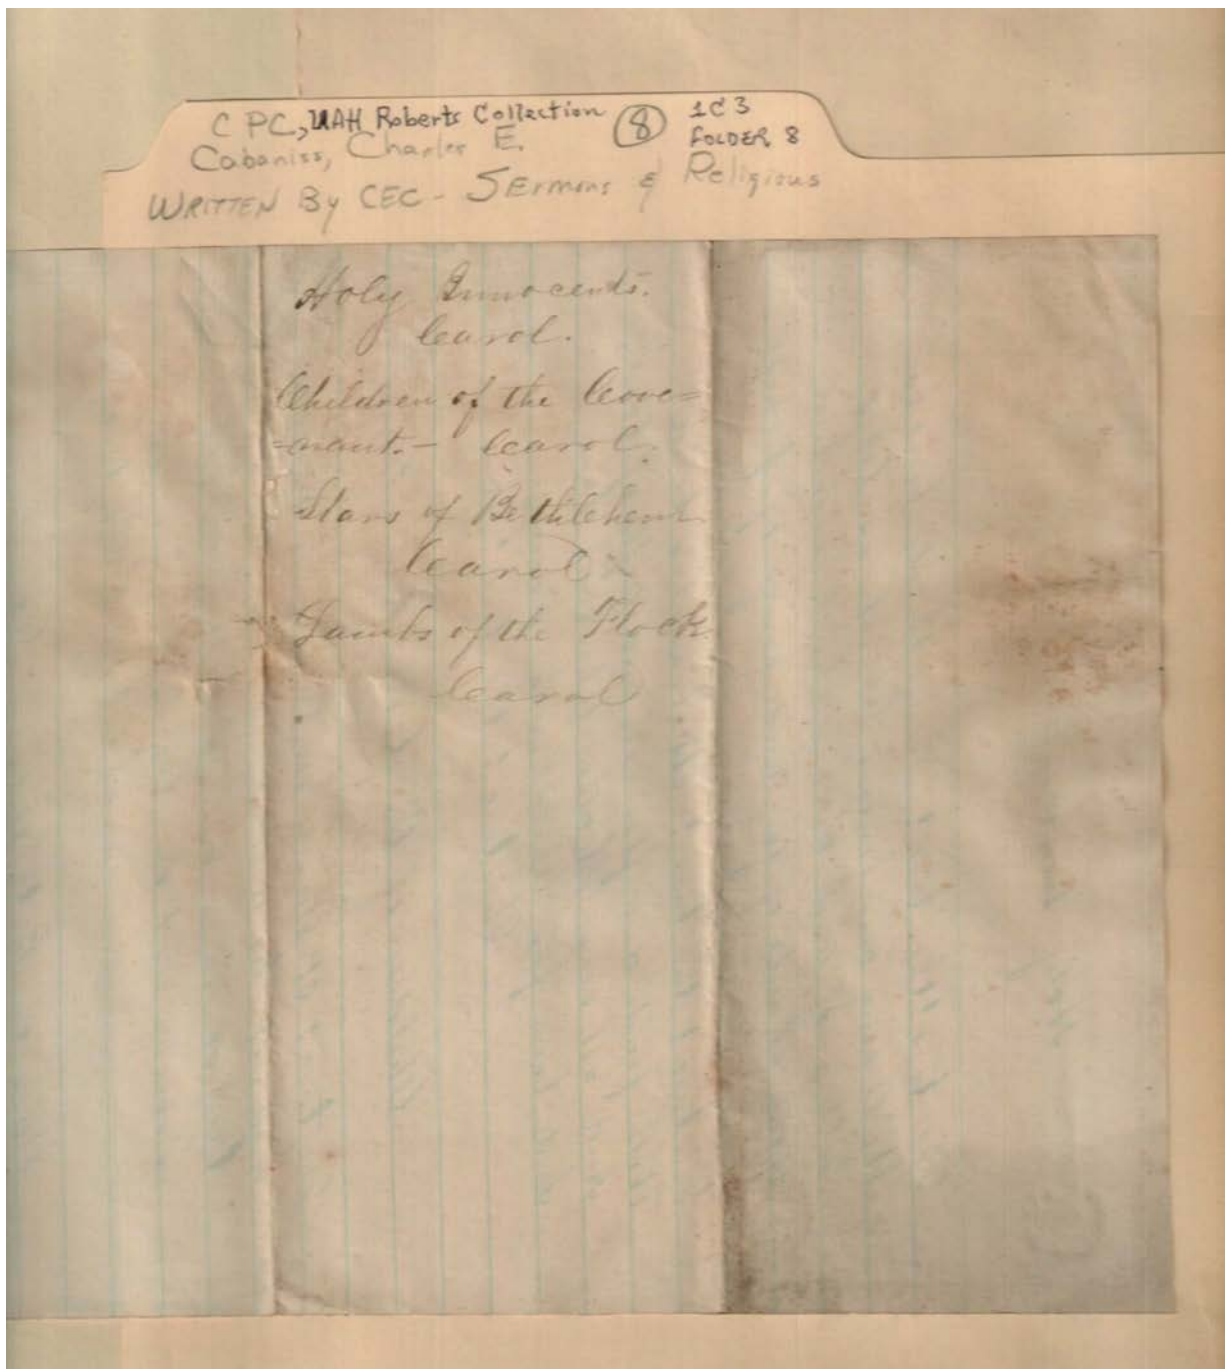 C PC, UAH Roberts Collection (8) 1C3
Cabaniss, Charles E. FOLDER 8
WRITTEN By CEC - SErmons & Religious
Holy Innocents.
Carol.
Children of the Cove=
=nant. - Carol.
Stars of Bethlehem
Carol
Lambs of the Flock.
Carol